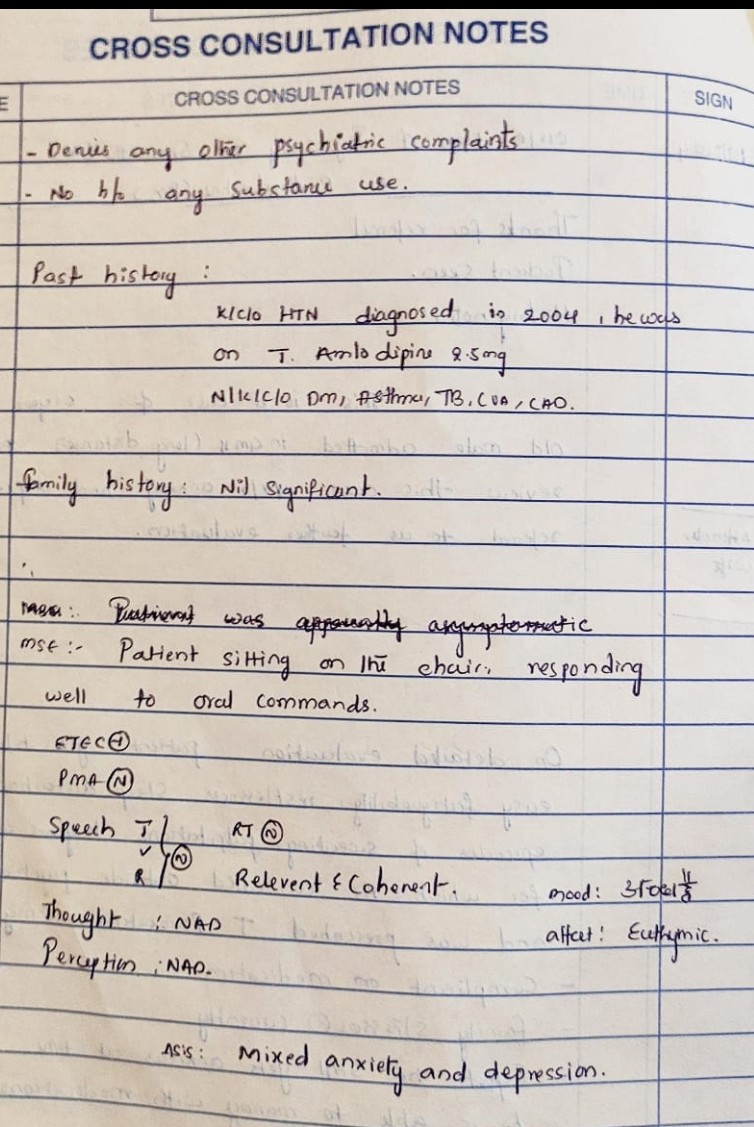 CROSS CONSULTATION NOTES
E CROSS CONSULTATION NOTES SIGN
- Denies any other psychiatric complaints
- No h/o any Substance use.
Past history :
K/C/O HTN diagnosed in 2004, he was
on T. Amlodipine 2.5mg
N/K/C/O DM, Asthma, TB, CVA, CAD.
family history: Nil significant.
was apparently asymptomatic
MSE :- Patient sitting on the chair, responding
well to oral commands.
ETEC (+)
PMA (N)
Speech T RT (N)
V (N)
R Relevent & Coherent. mood:
Thought : NAD affect: Euthymic.
Perception : NAD.
ASIS: Mixed anxiety and depression.